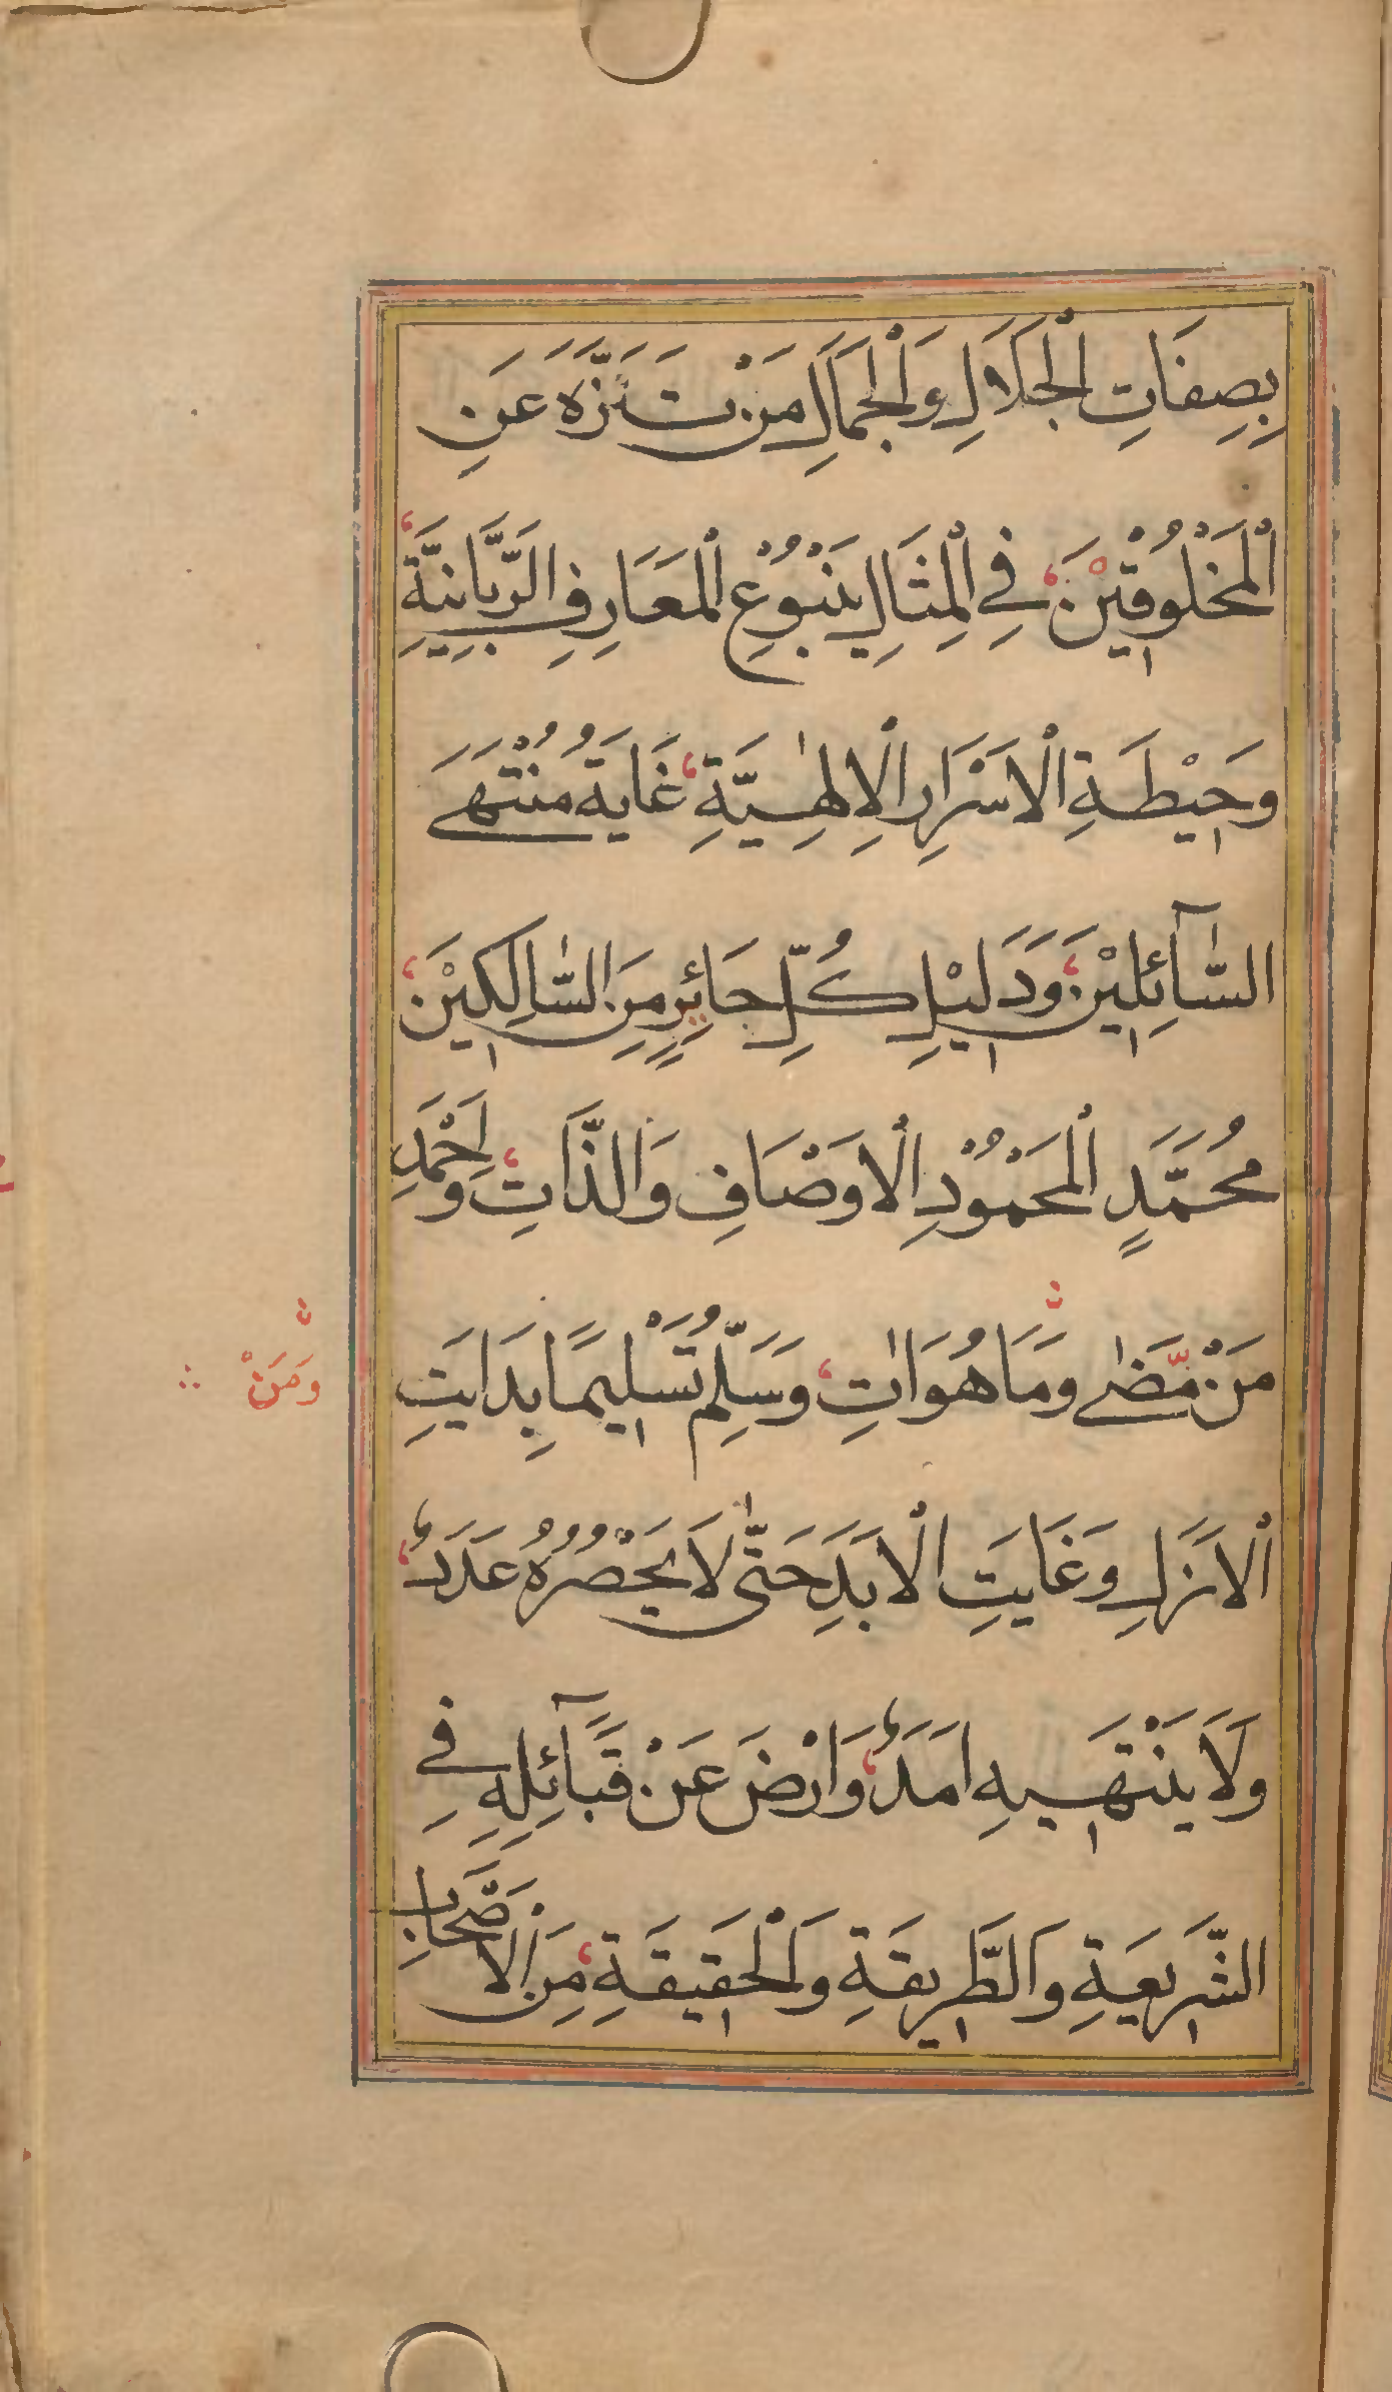 بِصِفَاتِ الْجَلَالِ وَالْجَمَالِ مَنْ تَنَزَّهَ عَنِ
الْمَخْلُوقِيْنَ فِي الْمِثَالِ يَنْبُوْعِ الْمَعَارِفِ الرَّبَّانِيَّةِ
وَحِيْطَةِ الْاَسْرَارِ الْاِلٰهِيَّةِ غَايَةُ مُنْتَهَى
السَّآئِلِيْنَ وَدَلِيْلِ كُلِّ حَائِرٍ مِنَ السَّالِكِيْنَ
مُحَمَّدٍ الْمَحْمُوْدِ الْاَوْصَافِ وَالذَّاتِ وَاَحْمَدِ
مَنْ مَّضٰى وَمَا هُوَ اٰتٍ وَسَلِّمْ تَسْلِيمًا بِدَايَتِ
الْاَزَلِ وَغَايَتِ الْاَبَدِ حَتّٰى لَا يَحْصُرُهُ عَدَدٌ
وَمَنْ
وَلَا يَنْتَهِيهِ اَمَدٌ وَارْضَ عَنْ قَبَآئِلِهِ فِي
الشَّرِيعَةِ وَالطَّرِيقَةِ وَالْحَقِيقَةِ مِنَ الْاَصْحَابِ